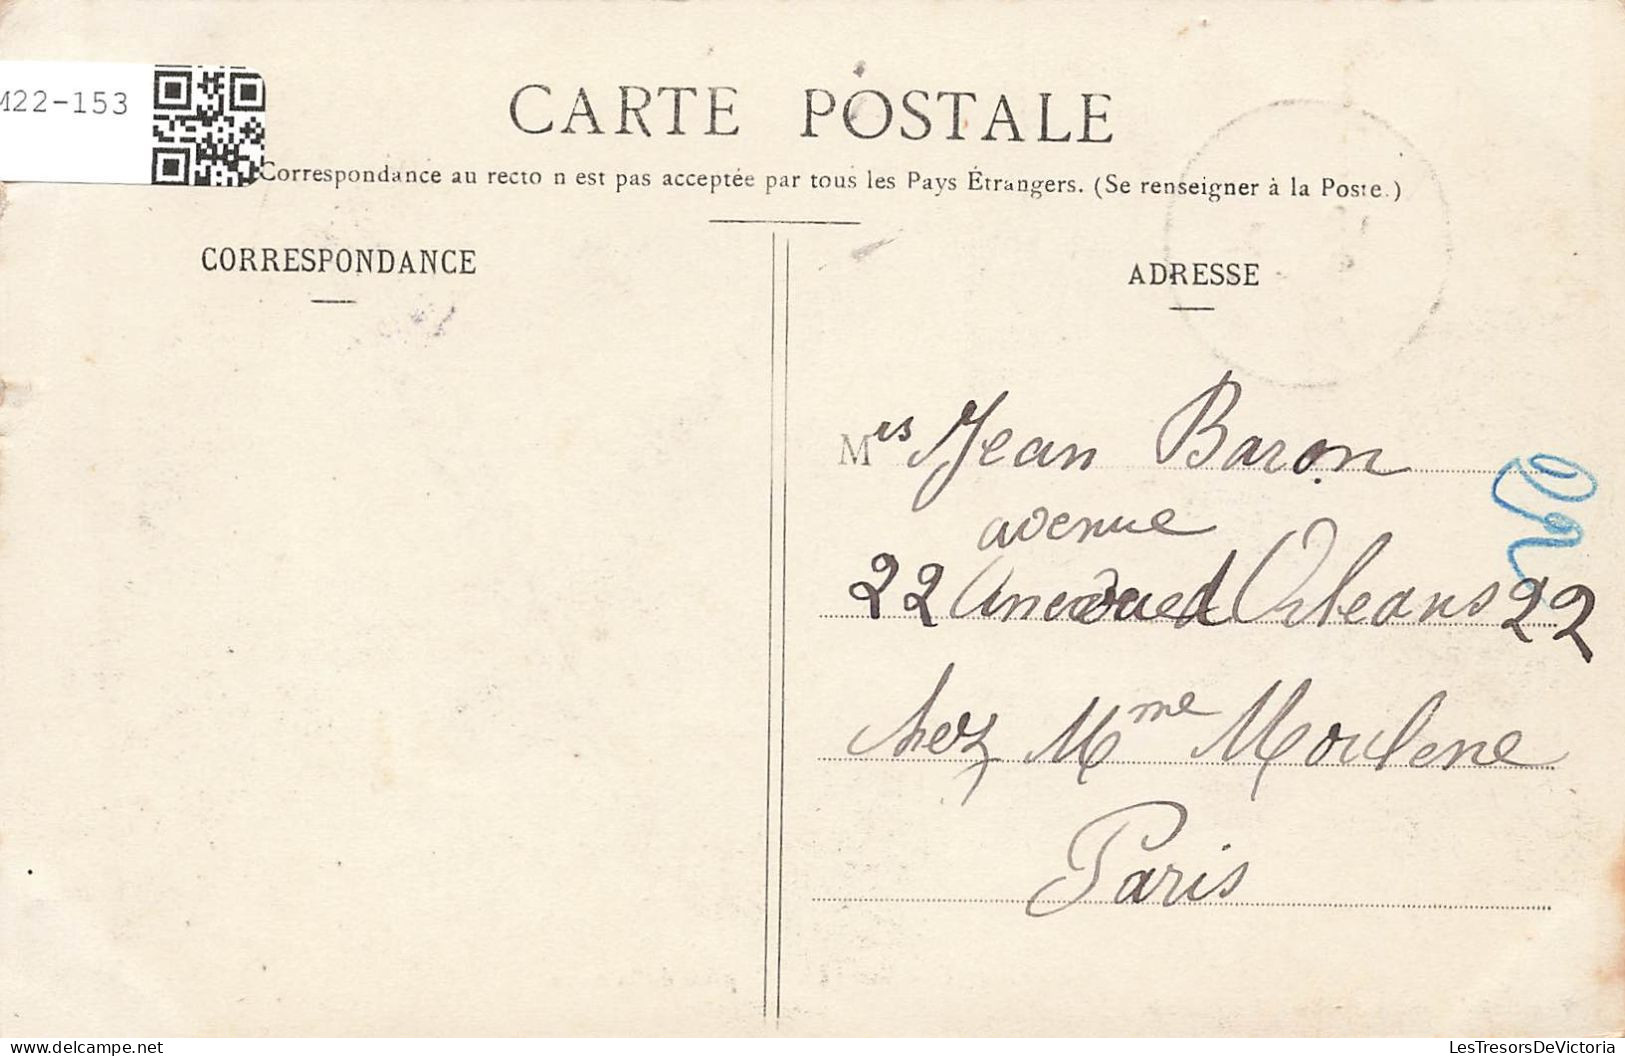 M22-153
CARTE POSTALE
Correspondance au recto n est pas acceptée par tous les Pays Étrangers. (Se renseigner à la Poste.)
CORRESPONDANCE
ADRESSE
Mrs Jean Baron
avenue
22 d'Orleans 22
chez Mme Moulene
Paris
LesTresorsDeVictoria